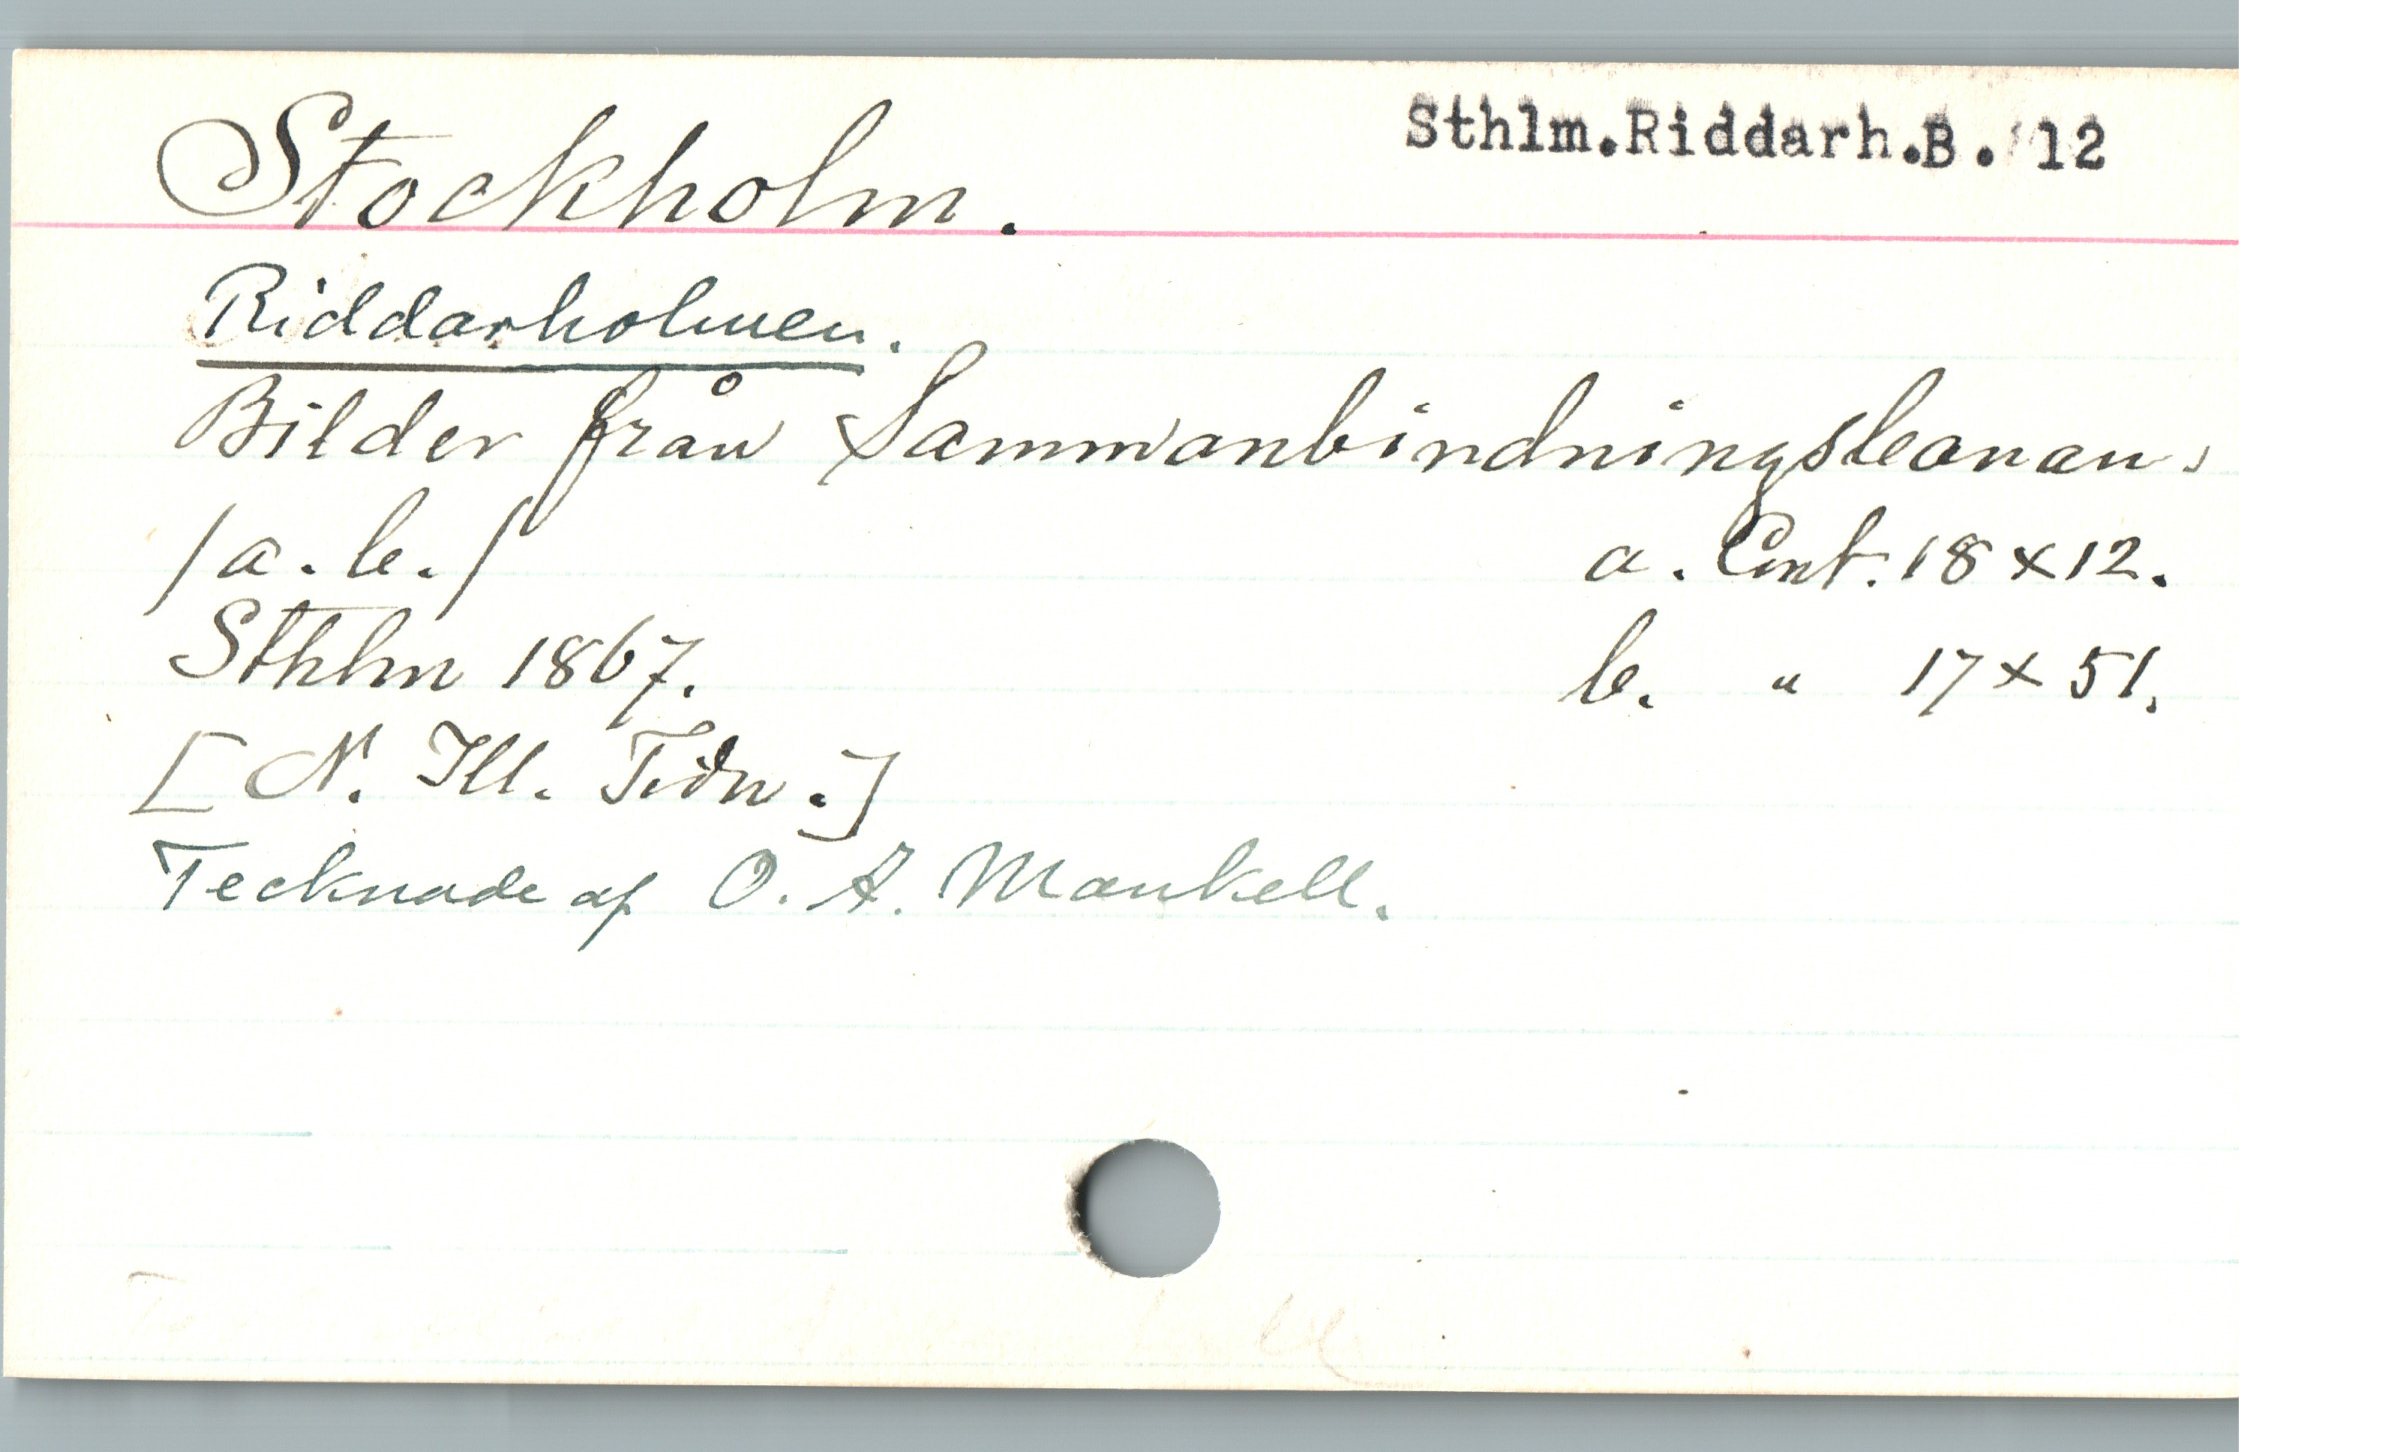 Stockholm.
Sthlm.Riddarh.B. 12
Riddarholmen.
Bilder från Sammanbindningsbanan.
/a.b./
a. Cont. 18 x 12.
Sthlm 1867.
b. " 17 x 51.
[N. Ill. Tidn.]
Tecknade af O. A. Mankell.